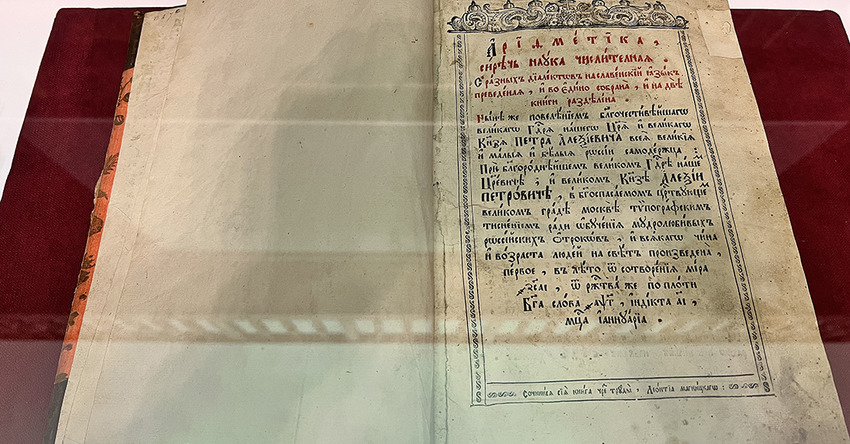 А҆рїѳме́тїка ,
сирѣчь наука числителная .
Съ разныхъ дїалектѡвъ на славенскїй ꙗзыкъ
преведеная , и во едино собрана , и на двѣ
книги раздѣлена .
Нынѣ же повелѣнїемъ бл҃гочестивѣйшагѡ
великагѡ Гдⷭ҇рѧ нашегѡ Цр҃ѧ и великагѡ
Кн҃зѧ ПЕТРА АЛЕѮІЕВИЧА всеѧ великїѧ
и малыѧ и бѣлыѧ рѡссїи самодержца :
При бл҃городнѣйшемъ великомъ Гдⷭ҇рѣ нашемъ
Цр҃евичѣ , и великомъ Кн҃зѣ АЛЕѮІИ
ПЕТРОВИЧѢ , в бг҃оспасаемомъ црⷭ҇твующемъ
великомъ градѣ москвѣ тѵпографскимъ
тисненїемъ ради ѡбученїѧ мудролюбивыхъ
рѡссїйскихъ ѻтрокѡвъ , и всѧкагѡ чина
и возраста людей на свѣтъ произведена ,
первое , въ лѣто ѿ сотворенїѧ мїра
҂зсаі , ѿ рж҃тва же по плоти
Бг҃а слова ҂аѱг , індїкта аі ,
мцⷭ҇а іаннуарїа .
Сочинисѧ сїѧ книга чрез труды Леонтїа магницкагѡ :